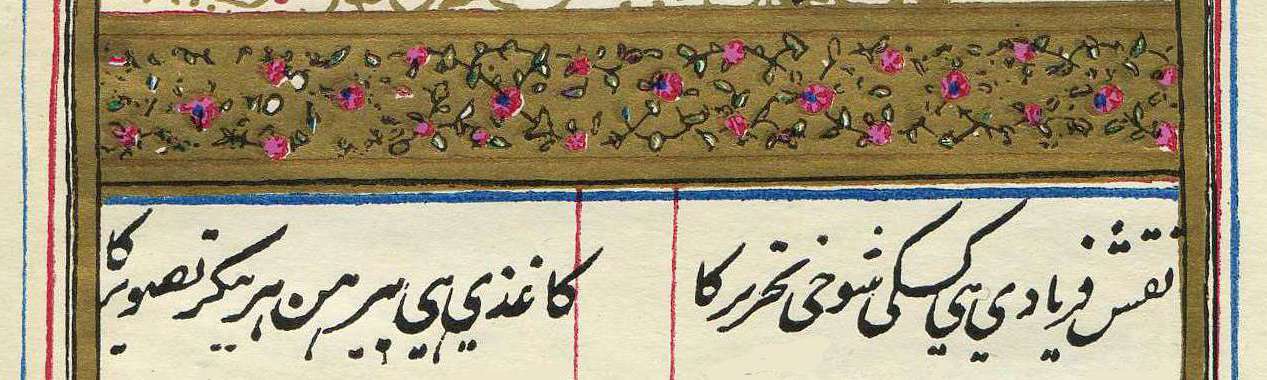 نقش فریادی ہی کسکی شوخی تحریر کا
کاغذی ہی پیرہن ہر پیکر تصویر کا